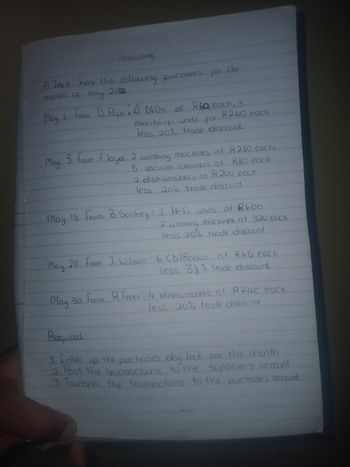 Accounting
A. Jack has the following purchases for the
month of May 2012
May 1 From D. Pope: 4 DVDs at R60 each, 3
mini hi-fi units for R240 each
less 20% trade discount
May 3 from F. Loyd: 2 washing machines at R230 each,
5 vacuum cleaners at R80 each
2 dishwashers at R200 each
less 20% trade discount
May 15 From B. Sankey: 1 Hi-Fi units at R600
2 washing machines at 320 each
less 25% trade discount
May 20 from J. Wilson: 6 CD/Radios at R45 each
less 33⅓% trade discount
May 30 From R. Freer: 4 dishwashers at R240 each
less 20% trade discount
Required
1. Enter up the purchases day book for the month
2. Post the transactions to the supplier's account
3. Transfer the transactions to the purchases account